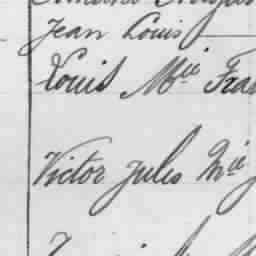 Jean Louis
Louis Mie Fra
Victor Jules Mie